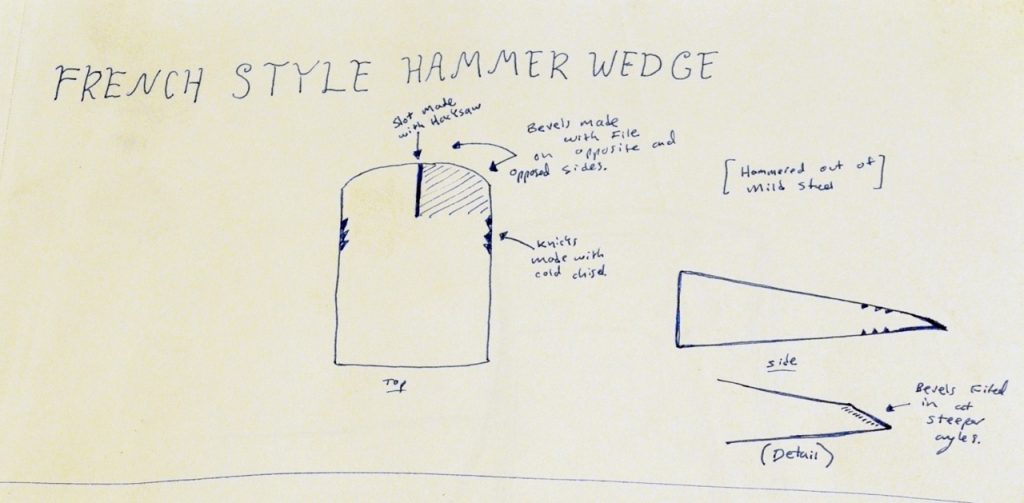 FRENCH STYLE HAMMER WEDGE
Slot made
with Hacksaw
Bevels made
with File
on opposite and
opposed sides.
[Hammered out of]
Mild Steel
Knicks
made with
cold chisel
Top
Side
Bevels Filed
in at
steeper
angles.
(Detail)